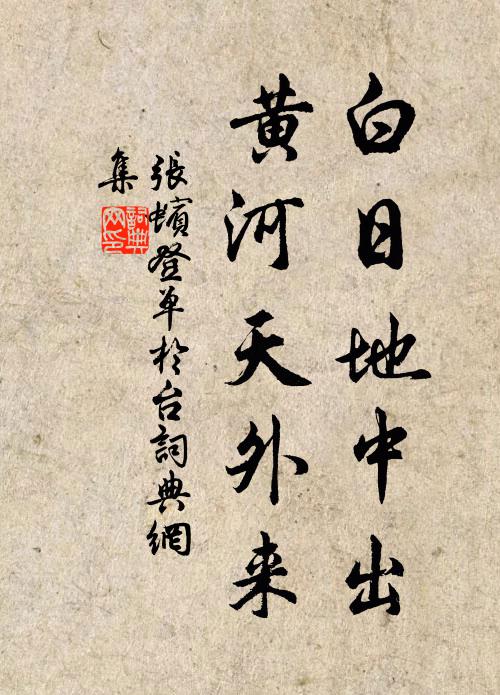 白日地中出
黄河天外来
張蠙登单於台詞典網
集
詞典
网印